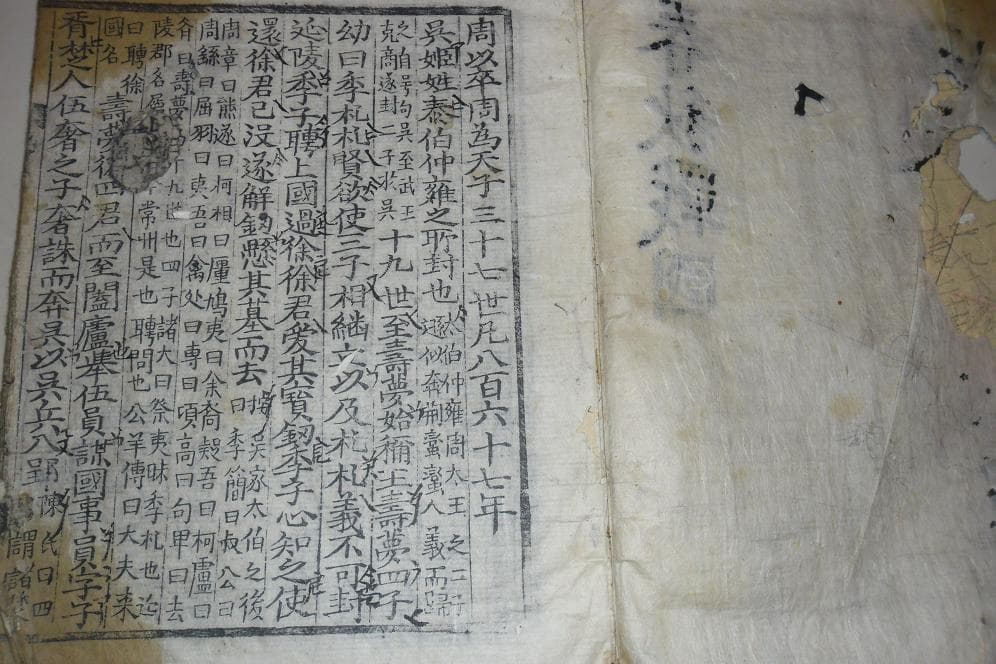 周以卒周為天子三十七世凡八百六十七年
吳姬姓泰伯仲雍之所封也太伯仲雍周大王之二子
遜似奔荊蠻蠻人義而歸
之自号句吳至武王
克商遂封二子於吳十九世至壽夢始稱王壽夢四子
幼曰季札札賢欲使三子相繼立以及札札義不可封
延陵季子聘上國過徐徐君愛其寶劒季子心知之使
還徐君已没遂解劒懸其墓而去按吳家太伯之後
曰季簡曰叔公曰
周章曰熊遂曰柯相曰彊鳩夷曰余裔設吾曰柯盧曰
周繇曰屈羽曰夷吾曰禽处曰專曰頃高曰句甲曰去
曰壽夢十九世也四子諸大曰祭夷昧季札也延
陵郡名常州是也聘問也公羊傳曰大夫来
曰聘徐
國名壽夢後四君而至闔廬舉伍員謀國事員字子
胥楚人伍奢之子奢誅而奔吳以吳兵入郢陳氏曰四
謂諸